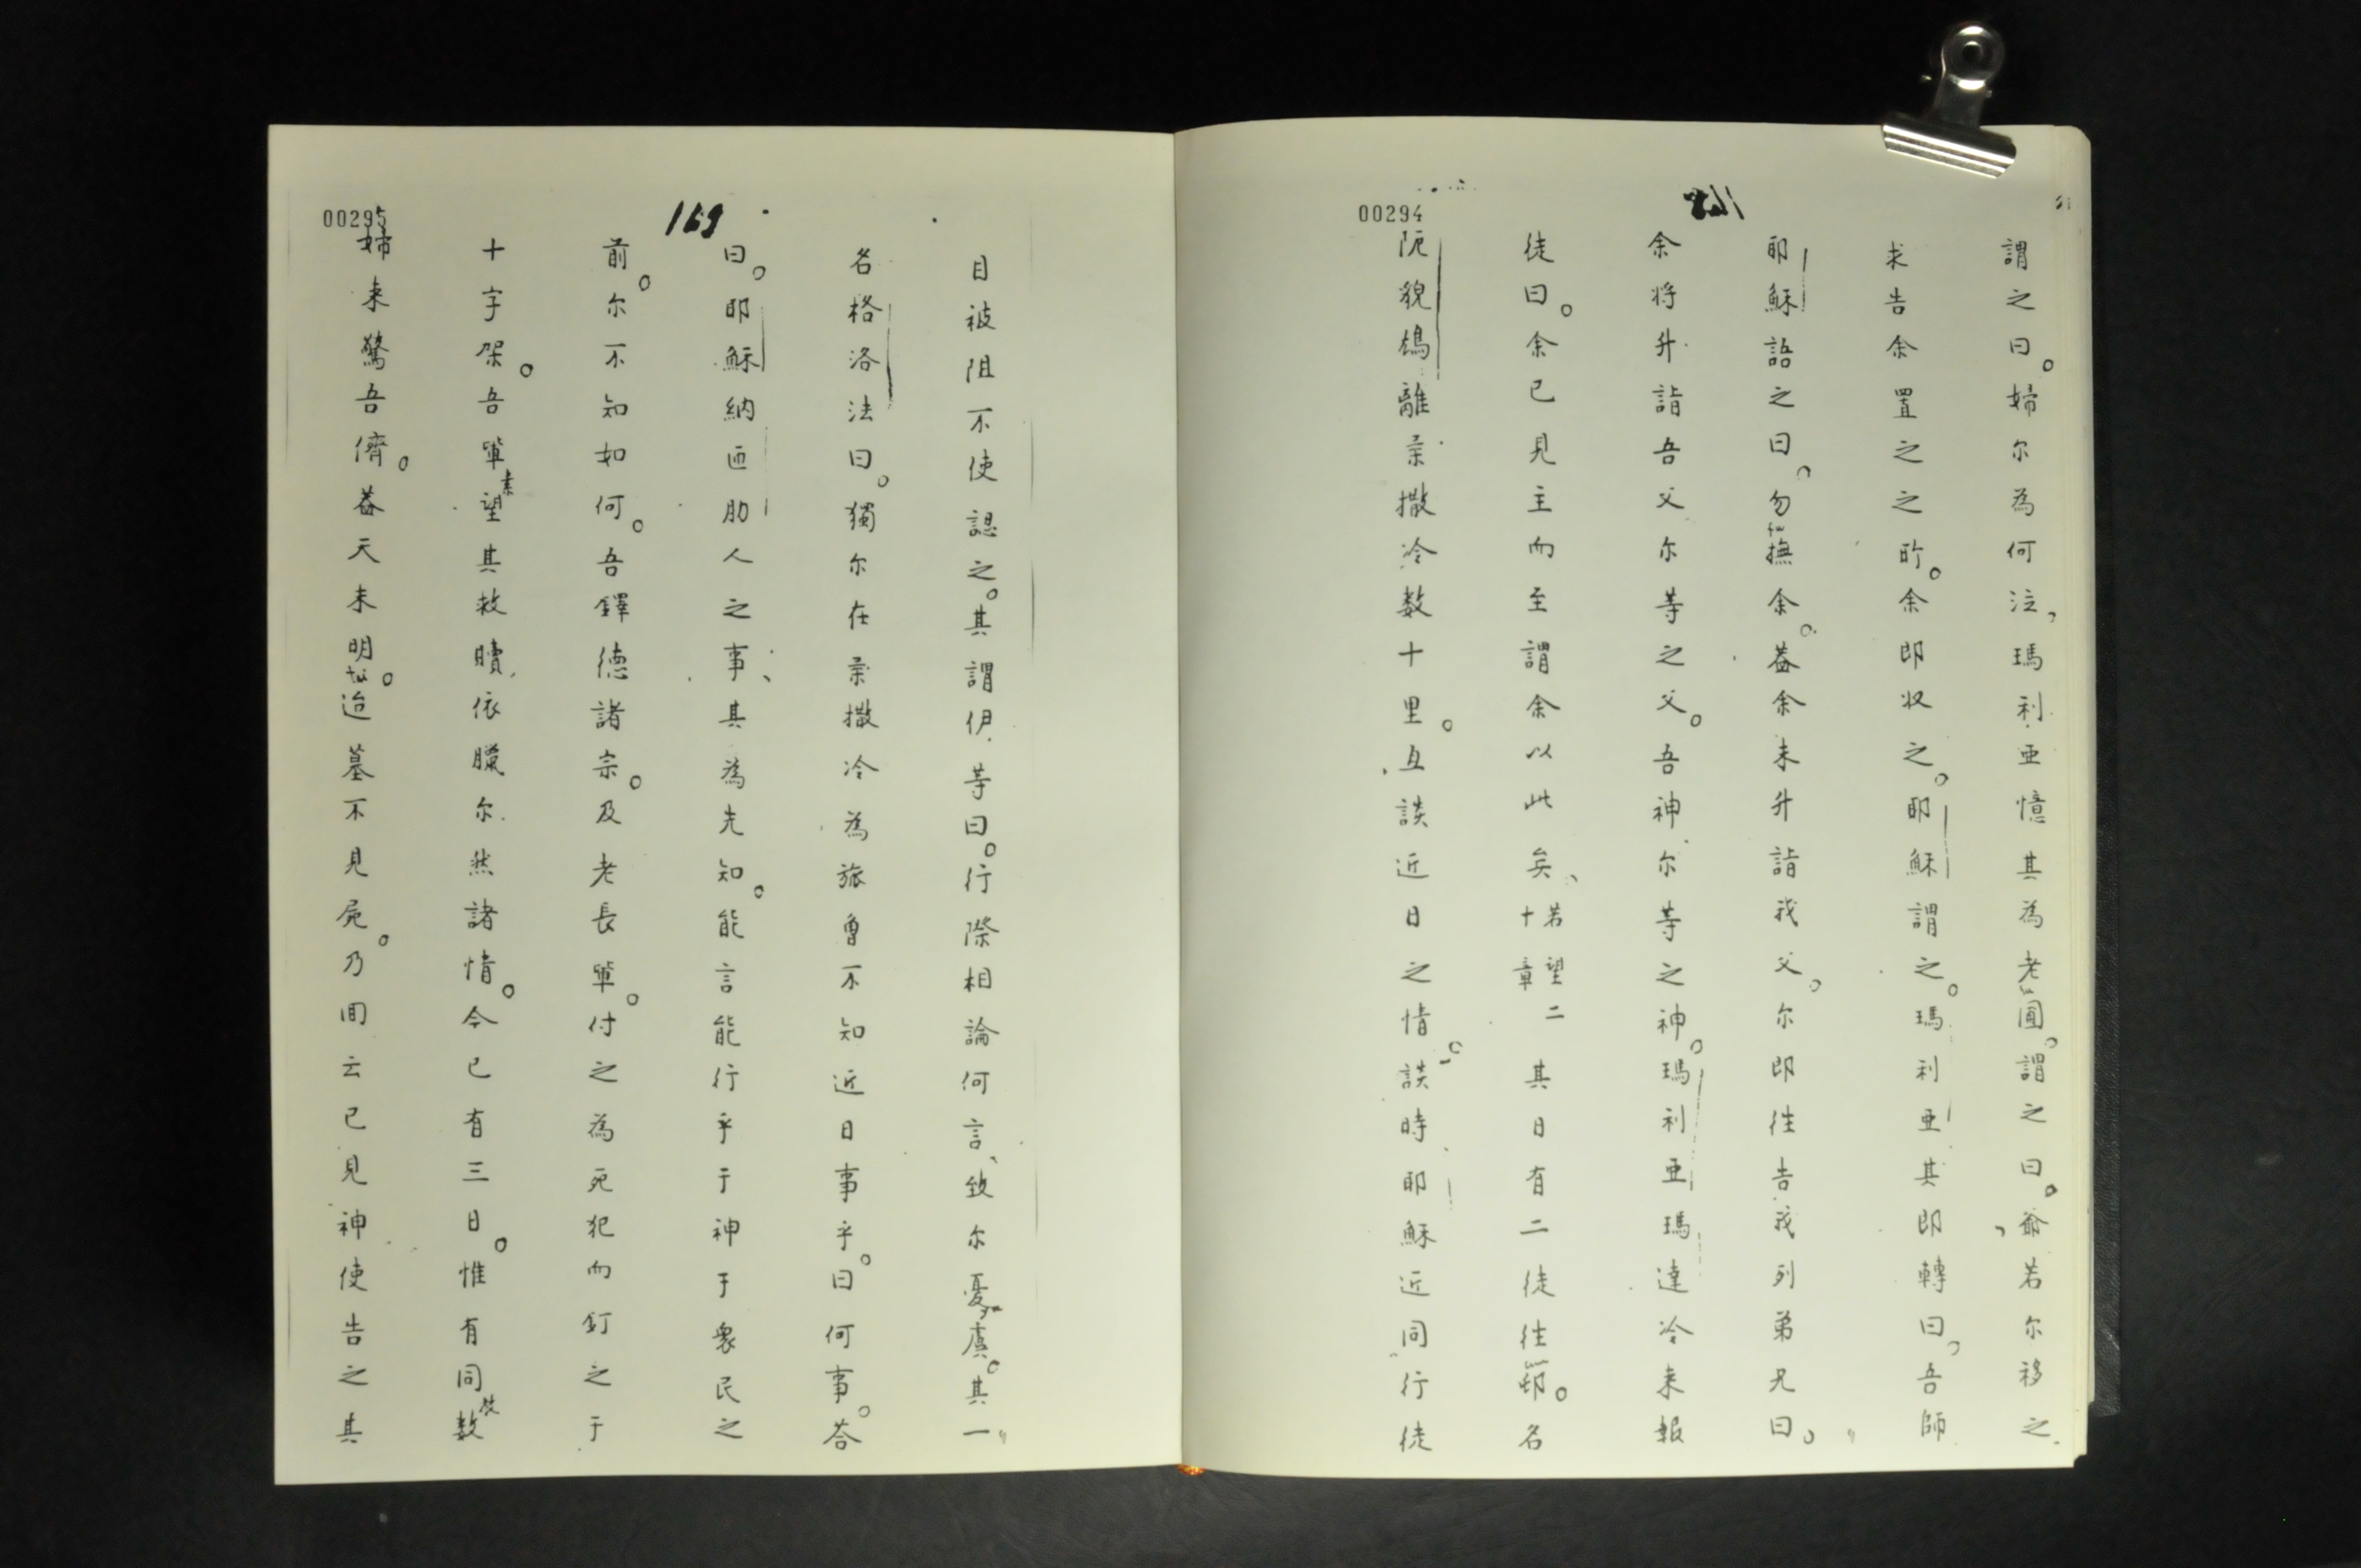 00294
謂之曰。婦尔為何泣，瑪利亜憶其為老圃。謂之曰。爺若尔移之
求告余置之之所。余即収之。耶穌謂之。瑪利亜其即轉曰。吾師
耶穌語之曰。勿撫余。葢余未升詣我父。尔即徃告我列弟兄曰。
余将升詣吾父尔等之父。吾神尔等之神。瑪利亜瑪達冷来報
徒曰。余已見主而至謂余以此矣、若望二十章 其日有二徒徃邨。名
阨貌鴆離柰撒冷数十里。互談近日之情。談時耶穌近同行徒
00295
169
目被阻不使認之。其謂伊等曰。行際相論何言、致尔憂虞。其一
名格洛法曰。獨尔在柰撒冷為旅曾不知近日事乎。曰何事。荅
曰。耶穌納匝肋人之事、其為先知。能言能行乎于神于衆民之
前。尔不知如何。吾鐸德諸宗。及老長軰。付之為死犯而釘之于
十字架。吾軰素望其救贖依臘尔然諸情。今已有三日。惟有同数
婦来驚吾儕。葢天未明。迨墓不見屍。乃囬云已見神使告之其